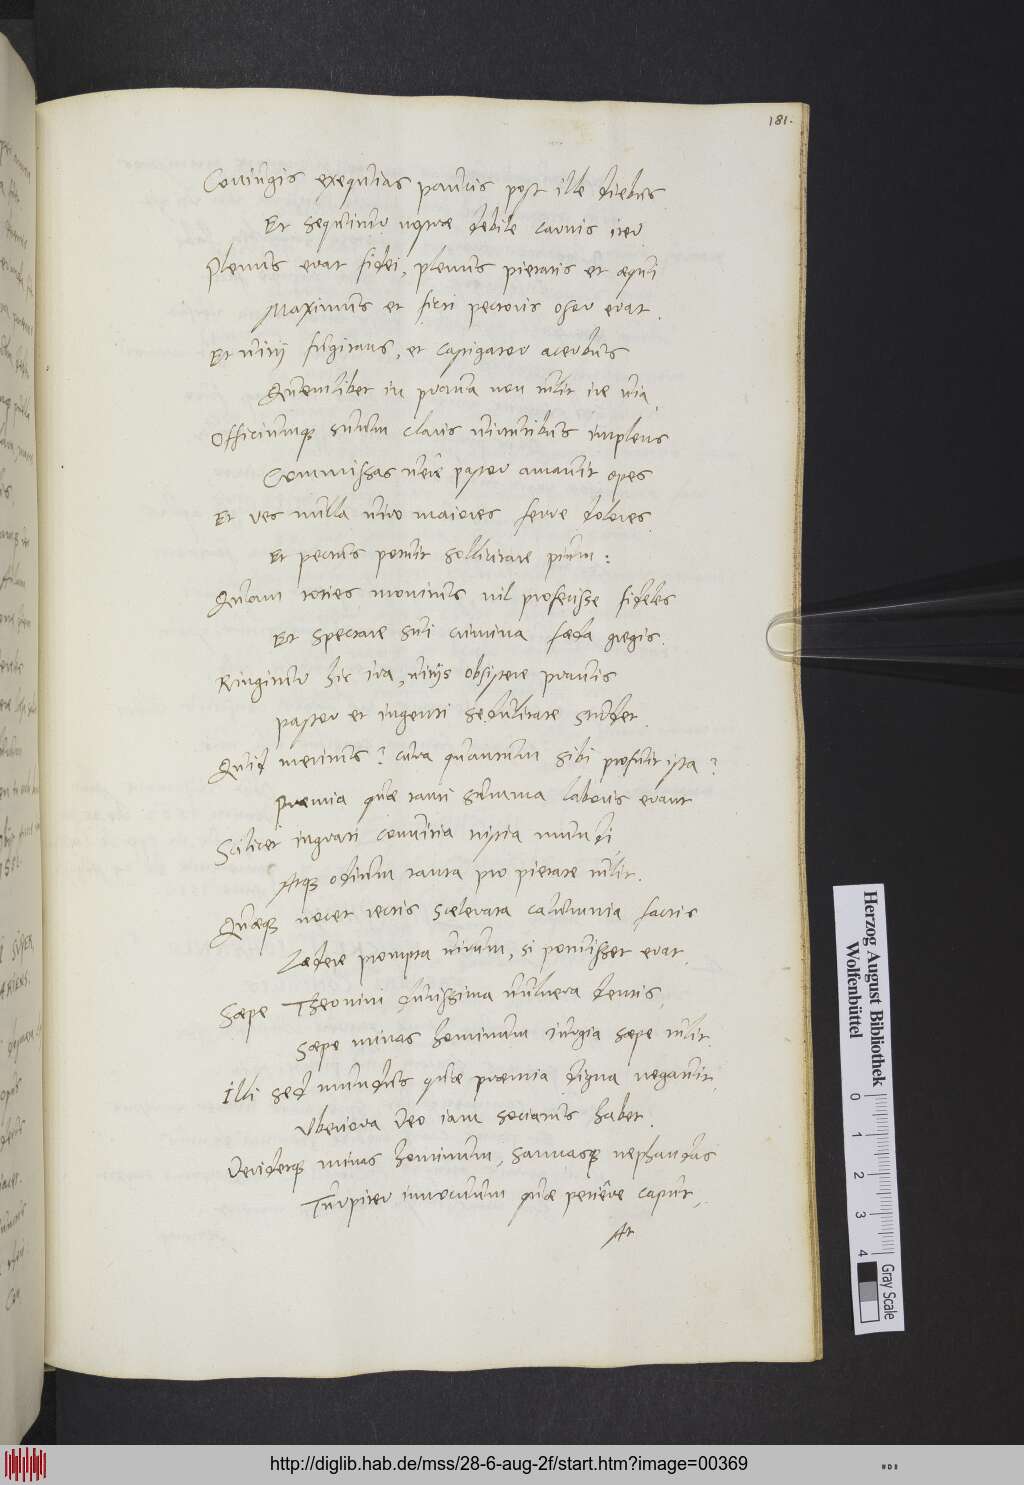 181.
Coniugis exequias paucis post ille diebus
Et sequitur nostrae debile carnis iter.
Plenus erat fidei, plenus pietatis et aequi
Maximus et ficti pectoris osor erat.
Et vitij fugitans, et castigator acerbus
Quemlibet in prava non tulit ire via.
Officiumq suum claris virtutibus implens
Commissas vere pastor amavit opes
Et res nulla viro maiores ferre dolores
Et pectus potuit sollicitare pium:
Quam toties monitus nil profecisse fideles
Et spectare sui crimina faeda gregis.
Ringitur hic ira, vitijs obsistere pravis
pastor et ingenti sedulitate studet.
Quid meritus? cura quantum sibi profuit ista?
Praemia quae tanti summa laboris erant
Scilicet ingrati convitia tristia mundi
Atq odium tanta pro pietate tulit.
Quaeq nocet rectis scelerata calumnia factis
Laedere prompta virum, si potuisset erat.
Saepe Theonini durissima vulnera dentis,
Saepe minas hominum iurgia saepe tulit.
Illi sed mundus quae praemia digna negavit,
Uberiora Deo iam sociatus habet.
Deridetq minas hominum, sannasq nephandas
Turpiter innocuum quae petiêre caput,
At
Herzog August Bibliothek
Wolfenbüttel
0 1 2 3 4
Gray Scale
http://diglib.hab.de/mss/28-6-aug-2f/start.htm?image=00369